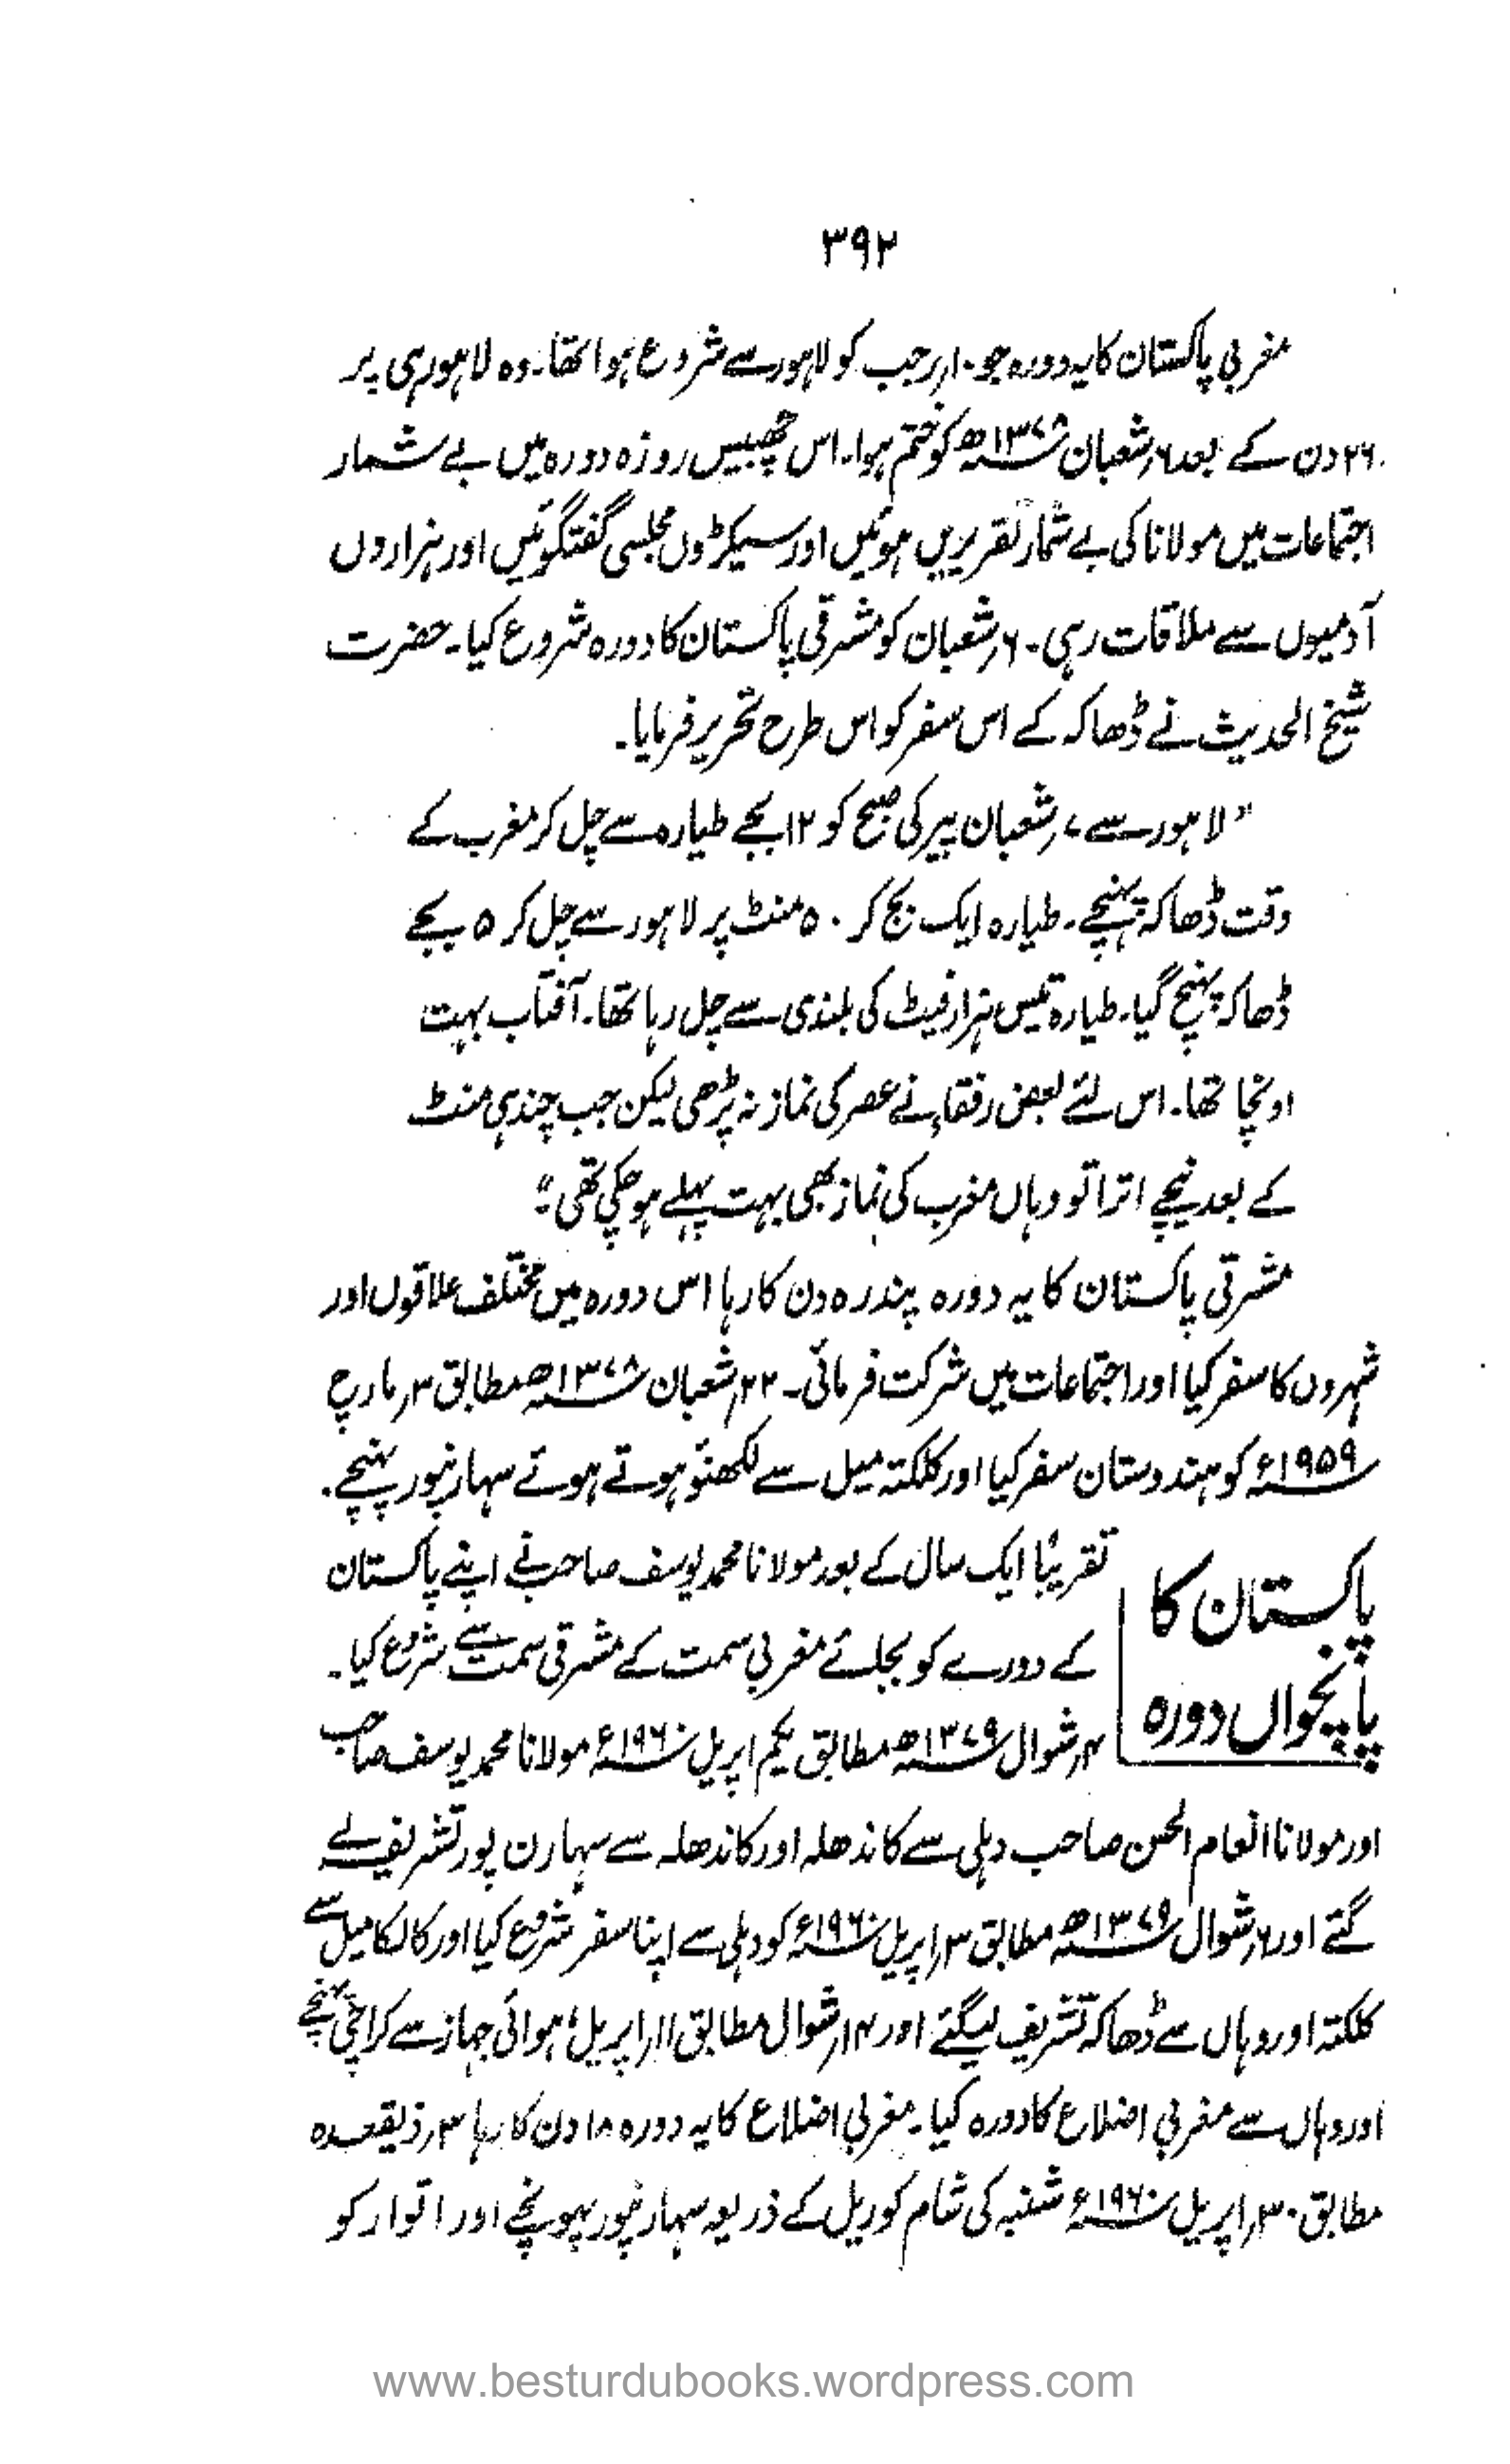 ۳۹۲
مغربی پاکستان کا یہ دورہ جو ۱۰؍رجب کو لاہور سے شروع ہوا تھا۔ وہ لاہور ہی پر
۲۶ دن کے بعد ۶؍شعبان ۱۳۷۸ھ کو ختم ہوا۔ اس چھبیس روزہ دورہ میں بے شمار
اجتماعات میں مولانا کی بے شمار تقریریں ہوئیں اور سیکڑوں مجلسی گفتگوئیں اور ہزاروں
آدمیوں سے ملاقات رہی۔ ۶؍شعبان کو مشرقی پاکستان کا دورہ شروع کیا۔ حضرت
شیخ الحدیث نے ڈھاکہ کے اس سفر کو اس طرح تحریر فرمایا۔
”لاہور سے ۷؍شعبان پیر کی صبح کو ۱۲ بجے طیارہ سے چل کر مغرب کے
وقت ڈھاکہ پہنچے۔ طیارہ ایک بج کر ۵۰ منٹ پر لاہور سے چل کر ۵ بجے
ڈھاکہ پہنچ گیا۔ طیارہ تیس ہزار فیٹ کی بلندی سے چل رہا تھا۔ آفتاب بہت
اونچا تھا۔ اس لئے بعض رفقاء نے عصر کی نماز نہ پڑھی لیکن جب چند ہی منٹ
کے بعد نیچے اترا تو وہاں مغرب کی نماز بھی بہت پہلے ہو چکی تھی“
مشرقی پاکستان کا یہ دورہ پندرہ دن کا رہا اس دورہ میں مختلف علاقوں اور
شہروں کا سفر کیا اور اجتماعات میں شرکت فرمائی۔ ۲۲؍شعبان ۱۳۷۸ھ مطابق ۳؍مارچ
۱۹۵۹ء کو ہندوستان سفر کیا اور کلکتہ میل سے لکھنؤ ہوتے ہوئے سہارنپور پہنچے۔
پاکستان کا
پانچواں دورہ
تقریباً ایک سال کے بعد مولانا محمد یوسف صاحب نے اپنے پاکستان
کے دورے کو بجائے مغربی سمت کے مشرقی سمت سے شروع کیا۔
۴؍شوال ۱۳۷۹ھ مطابق یکم اپریل ۱۹۶۰ء مولانا محمد یوسف صاحب
اور مولانا انعام الحسن صاحب دہلی سے کاندھلہ اور کاندھلہ سے سہارن پور تشریف لے
گئے اور ۶؍شوال ۱۳۷۹ھ مطابق ۳؍اپریل ۱۹۶۰ء کو دہلی سے اپنا سفر شروع کیا اور کالکا میل سے
کلکتہ اور وہاں سے ڈھاکہ تشریف لیگئے اور ۱۴؍شوال مطابق ۱۱؍اپریل ہوائی جہاز سے کراچی پہنچے
اور وہاں سے مغربی اضلاع کا دورہ کیا۔ مغربی اضلاع کا یہ دورہ ۱۸ دن کا رہا ۳؍ذیقعدہ
مطابق ۳۰؍اپریل ۱۹۶۰ء شنبہ کی شام کو ریل کے ذریعہ سہارنپور پہونچے اور اتوار کو
www.besturdubooks.wordpress.com